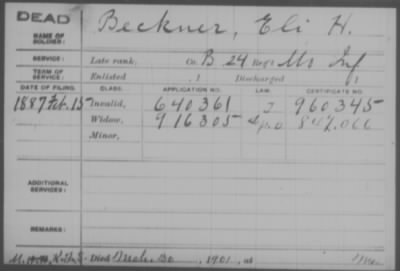 DEAD
Beckner, Eli H.
NAME OF SOLDIER:
SERVICE: Late rank, Co. B 24 Reg't Mo Inf
TERM OF SERVICE: Enlisted , 1 Discharged , 1
DATE OF FILING. CLASS. APPLICATION NO. LAW. CERTIFICATE NO.
1887 Feb. 15 Invalid, 640361 960345
Widow, 916305 847.066
Minor,
ADDITIONAL SERVICES:
REMARKS:
Died Mch. 30, 1901, at